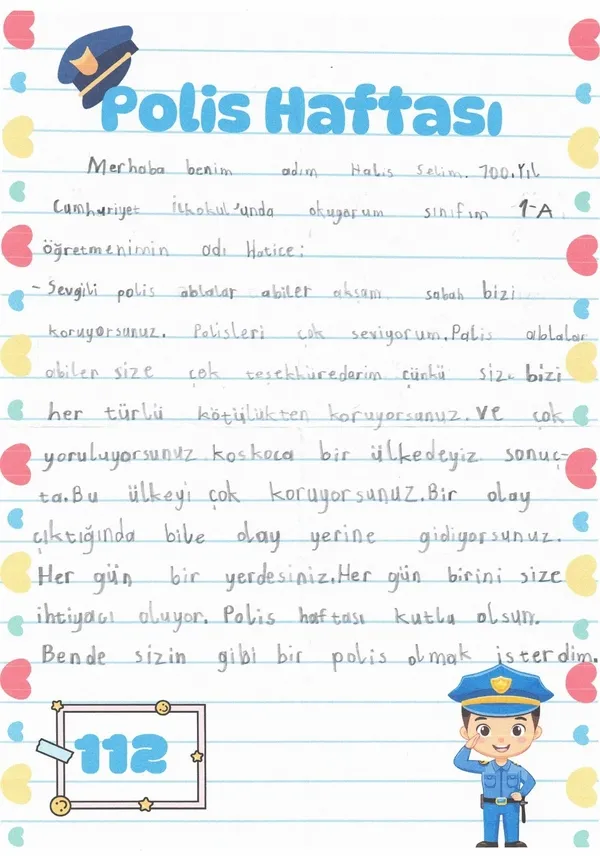 Polis Haftası
Merhaba benim adım Halis Selim. 100.Yıl
Cumhuriyet İlkokul'unda okuyorum sınıfım 1-A
öğretmenimin adı Hatice:
- Sevgili polis ablalar abiler akşam sabah bizi
koruyorsunuz. Polisleri çok seviyorum. Polis ablalar
abiler size çok teşekkürederim çünkü siz bizi
her türlü kötülükten koruyorsunuz. ve çok
yoruluyorsunuz koskoca bir ülkedeyiz sonuç-
ta. Bu ülkeyi çok koruyorsunuz. Bir olay
çıktığında bile olay yerine gidiyorsunuz.
Her gün bir yerdesiniz. Her gün birini size
ihtiyacı oluyor. Polis haftası kutlu olsun.
Bende sizin gibi bir polis olmak isterdim.
112